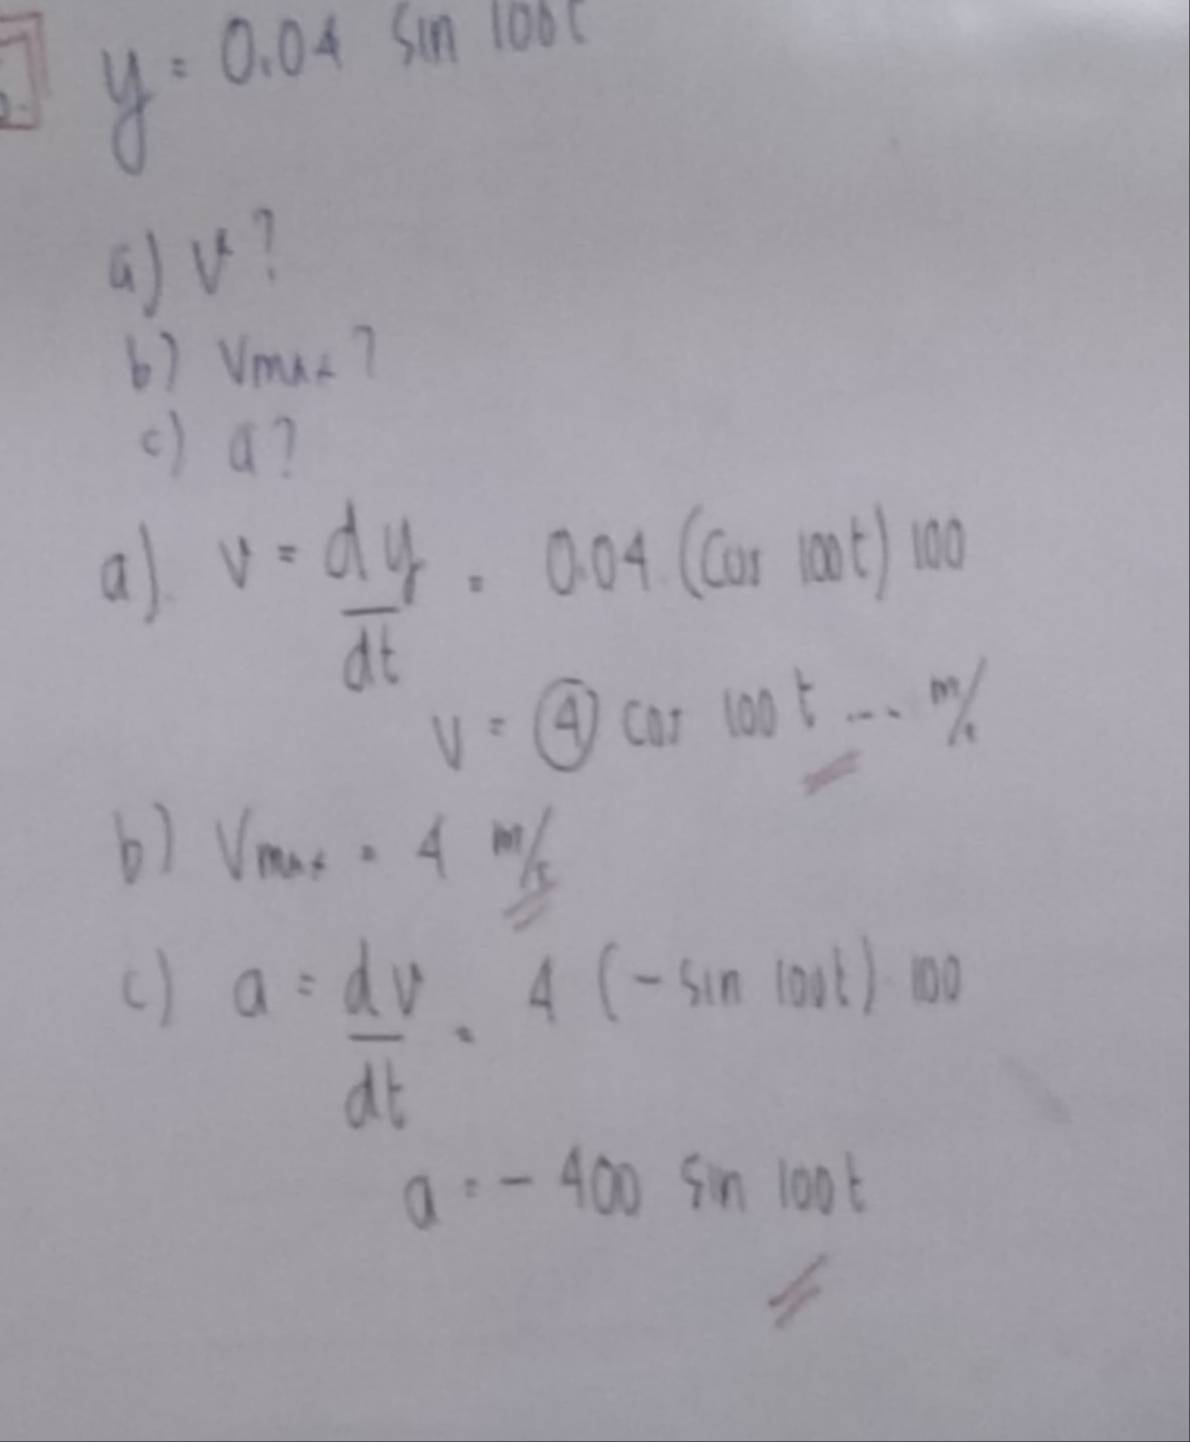 y = 0.04 sin 100t
a) v?
b) Vmax?
c) a?
a). v = dy/dt = 0.04 (Cos 100t) 100
v = 4 cos 100t ... m/s
b) Vmax = 4 m/s
c) a = dv/dt = 4 (-sin 100t) 100
a = - 400 sin 100t